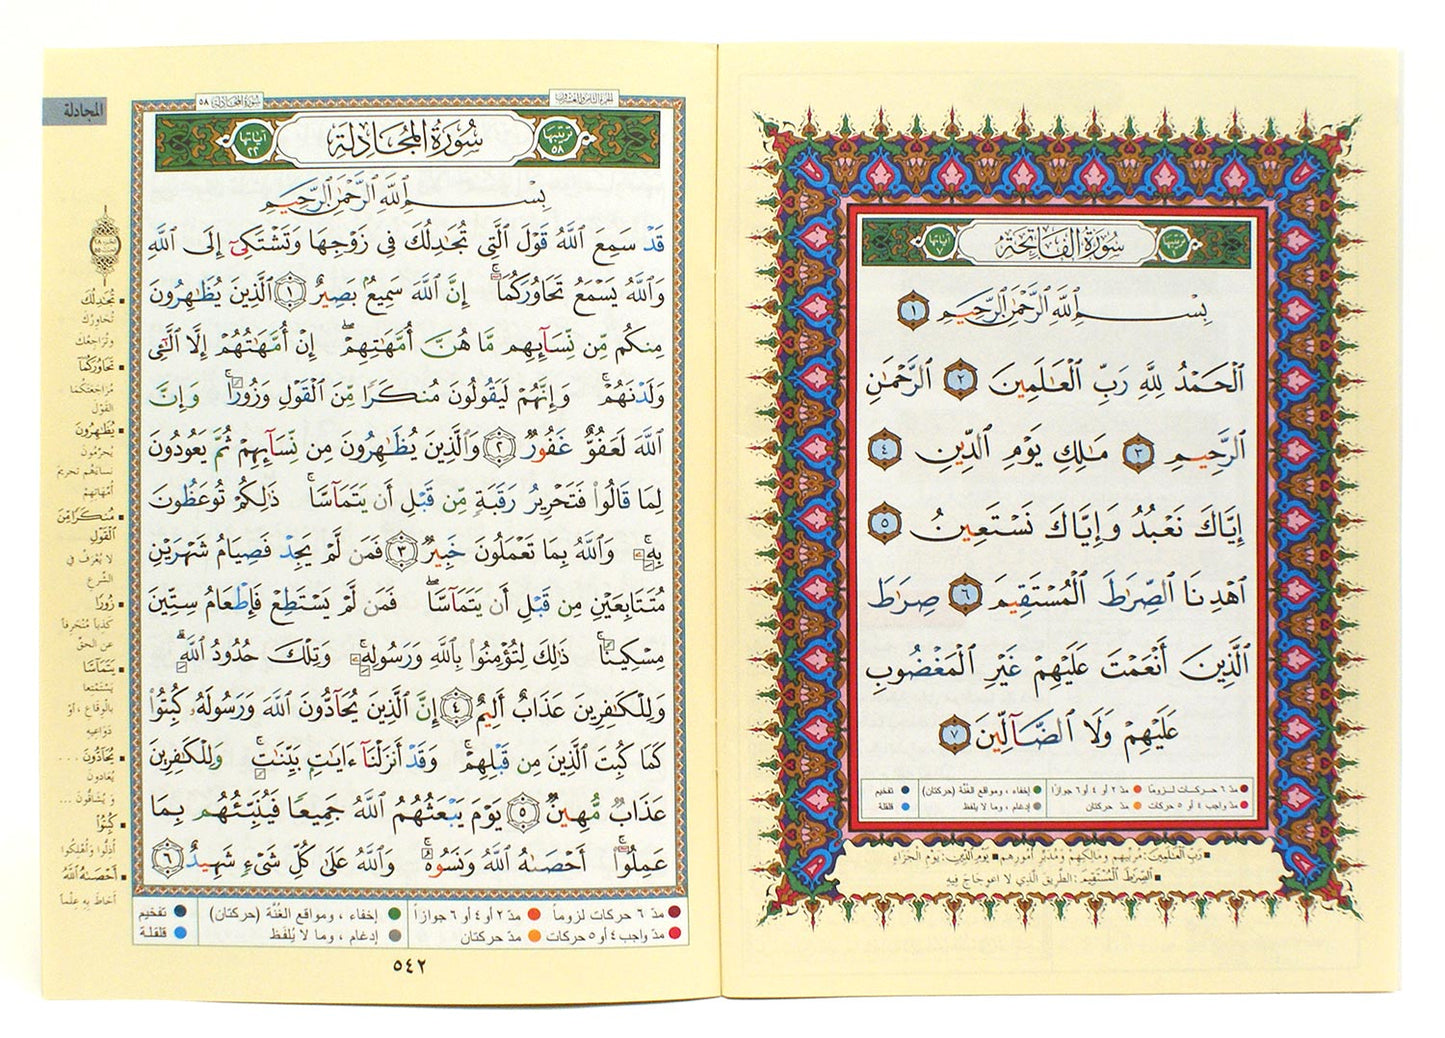 سُورَةُ الفَاتِحَةِ
ترتيبها ١
آياتها ٧
بِسْمِ ٱللَّهِ ٱلرَّحْمَٰنِ ٱلرَّحِيمِ ١
ٱلْحَمْدُ لِلَّهِ رَبِّ ٱلْعَٰلَمِينَ ٢ ٱلرَّحْمَٰنِ
ٱلرَّحِيمِ ٣ مَٰلِكِ يَوْمِ ٱلدِّينِ ٤
إِيَّاكَ نَعْبُدُ وَإِيَّاكَ نَسْتَعِينُ ٥
ٱهْدِنَا ٱلصِّرَٰطَ ٱلْمُسْتَقِيمَ ٦ صِرَٰطَ
ٱلَّذِينَ أَنْعَمْتَ عَلَيْهِمْ غَيْرِ ٱلْمَغْضُوبِ
عَلَيْهِمْ وَلَا ٱلضَّآلِّينَ ٧
مدّ ٦ حركات لزوماً مدّ ٢ أو ٤ أو ٦ جوازاً إخفاء ، ومواقع الغُنَّة (حركتان) تفخيم
مدّ واجب ٤ أو ٥ حركات مدّ حركتان إدغام ، وما لا يُلفَظ قلقلة
رَبِّ الْعَالَمِينَ: مربّيهم ومالكهم ومدبّر أمورهم يَوْمِ الدِّينِ: يوم الجزاء
الصِّرَاطَ الْمُسْتَقِيمَ: الطّريق الّذي لا اعوجاج فيه
الجزء الثامن والعشرون
سورة المجادلة ٥٨
المجادلة
سُورَةُ المُجَادِلَةِ
ترتيبها ٥٨
آياتها ٢٢
بِسْمِ ٱللَّهِ ٱلرَّحْمَٰنِ ٱلرَّحِيمِ
قَدْ سَمِعَ ٱللَّهُ قَوْلَ ٱلَّتِى تُجَٰدِلُكَ فِى زَوْجِهَا وَتَشْتَكِىٓ إِلَى ٱللَّهِ
وَٱللَّهُ يَسْمَعُ تَحَاوُرَكُمَآ ۚ إِنَّ ٱللَّهَ سَمِيعٌۢ بَصِيرٌ ١ ٱلَّذِينَ يُظَٰهِرُونَ
مِنكُم مِّن نِّسَآئِهِم مَّا هُنَّ أُمَّهَٰتِهِمْ ۖ إِنْ أُمَّهَٰتُهُمْ إِلَّا ٱلَّٰٓـِٔى
وَلَدْنَهُمْ ۚ وَإِنَّهُمْ لَيَقُولُونَ مُنكَرًا مِّنَ ٱلْقَوْلِ وَزُورًا ۚ وَإِنَّ
ٱللَّهَ لَعَفُوٌّ غَفُورٌ ٢ وَٱلَّذِينَ يُظَٰهِرُونَ مِن نِّسَآئِهِمْ ثُمَّ يَعُودُونَ
لِمَا قَالُوا۟ فَتَحْرِيرُ رَقَبَةٍ مِّن قَبْلِ أَن يَتَمَآسَّا ۚ ذَٰلِكُمْ تُوعَظُونَ
بِهِۦ ۚ وَٱللَّهُ بِمَا تَعْمَلُونَ خَبِيرٌ ٣ فَمَن لَّمْ يَجِدْ فَصِيَامُ شَهْرَيْنِ
مُتَتَابِعَيْنِ مِن قَبْلِ أَن يَتَمَآسَّا ۖ فَمَن لَّمْ يَسْتَطِعْ فَإِطْعَامُ سِتِّينَ
مِسْكِينًا ۚ ذَٰلِكَ لِتُؤْمِنُوا۟ بِٱللَّهِ وَرَسُولِهِۦ ۚ وَتِلْكَ حُدُودُ ٱللَّهِ ۗ
وَلِلْكَٰفِرِينَ عَذَابٌ أَلِيمٌ ٤ إِنَّ ٱلَّذِينَ يُحَآدُّونَ ٱللَّهَ وَرَسُولَهُۥ كُبِتُوا۟
كَمَا كُبِتَ ٱلَّذِينَ مِن قَبْلِهِمْ ۚ وَقَدْ أَنزَلْنَآ ءَايَٰتٍۭ بَيِّنَٰتٍ ۚ وَلِلْكَٰفِرِينَ
عَذَابٌ مُّهِينٌ ٥ يَوْمَ يَبْعَثُهُمُ ٱللَّهُ جَمِيعًا فَيُنَبِّئُهُم بِمَا
عَمِلُوٓا۟ ۚ أَحْصَىٰهُ ٱللَّهُ وَنَسُوهُ ۚ وَٱللَّهُ عَلَىٰ كُلِّ شَىْءٍ شَهِيدٌ ٦
تُجَادِلُكَ
تُحَاوِرُك
وتُرَاجِعُكَ
تَحَاوُرَكُمَا
مُرَاجَعَتَكُمَا
القَوْل
يُظَاهِرُونَ
يُحَرِّمُونَ
نسائهُم تحريمَ
أُمَّهَاتِهِمْ
مُنكَرًا مِّنَ
الْقَوْلِ
لا يُعْرَفُ في
الشّرعِ
زُورًا
كَذِباً مُنْحَرِفاً
عن الحقّ
يَتَمَآسَّا
يَسْتَمْتِعا
بالْوِقاعِ ، أوْ
دَوَاعِيهِ
يُحَآدُّونَ ...
يُعَادونَ
وَ يُشَاقُّونَ ...
كُبِتُوا
أُذِلُّوا وَأُهْلِكُوا
أَحْصَىٰهُ اللَّهُ
أحَاطَ بِهِ عِلْماً
مدّ ٦ حركات لزوماً مدّ ٢ أو ٤ أو ٦ جوازاً إخفاء ، ومواقع الغُنَّة (حركتان) تفخيم
مدّ واجب ٤ أو ٥ حركات مدّ حركتان إدغام ، وما لا يُلفَظ قلقلة
٥٤٢